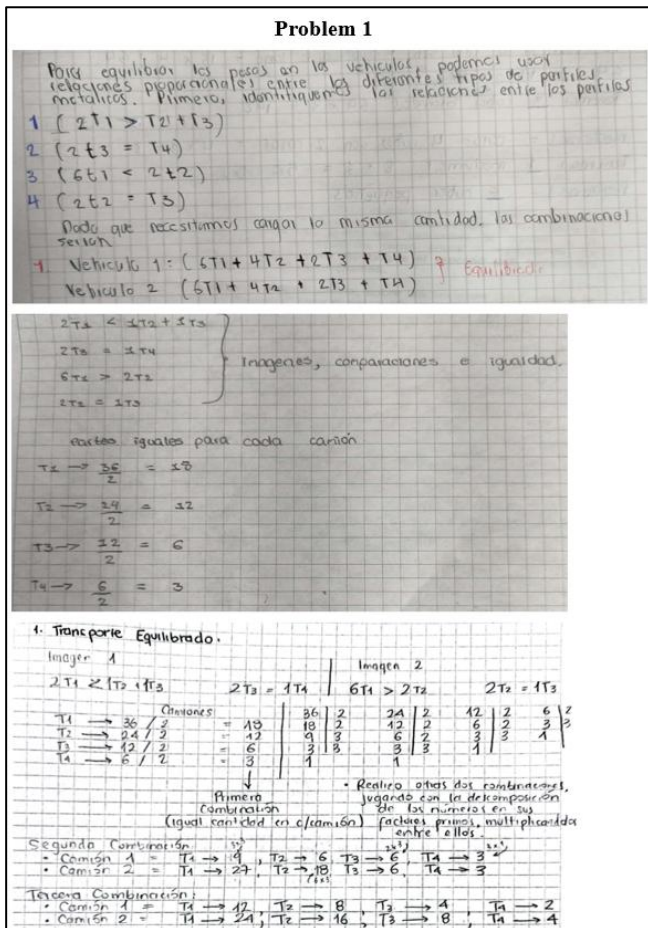 Problem 1
Para equilibrar los pesos en los vehiculos, podemos usar
relaciones proporcionales entre los diferentes tipos de perfiles
metalicos. Primero, identifiquemos las relaciones entre los perfiles
1 (2T1 > T2 + T3)
2 (2t3 = T4)
3 (6t1 < 2t2)
4 (2t2 = T3)
Dado que necesitamos cargar la misma cantidad, las combinaciones
serian
1 Vehiculo 1 = (6T1 + 4T2 + 2T3 + T4) } Equilibrado
Vehiculo 2 (6T1 + 4T2 + 2T3 + T4)
2T1 < 1T2 + 1T3
2T3 = 1T4
Imagenes, comparaciones e igualdad.
6T1 > 2T2
2T2 = 1T3
Partes iguales para cada camión
T1 → 36/2 = 18
T2 → 24/2 = 12
T3 → 12/2 = 6
T4 → 6/2 = 3
1. Transporte Equilibrado.
Imagen 1 | Imagen 2
2T1 < 1T2 + 1T3 2T3 = 1T4 | 6T1 > 2T2 2T2 = 1T3
Camiones
T1 → 36 / 2 = 18 36 | 2 24 | 2 12 | 2 6 | 2
T2 → 24 / 2 = 12 18 | 2 12 | 2 6 | 2 3 | 3
T3 → 12 / 2 = 6 9 | 3 6 | 2 3 | 3 1
T4 → 6 / 2 = 3 3 | 3 3 | 3 1
1 1
Primera
Combinación
(igual cantidad en c/camión)
• Realizo otras dos combinaciones,
jugando con la descomposición
de los números en sus
factores primos, multiplicandolos
entre ellos.
Segunda Combinación: 3x3 2x3
• Camión 1 = T1 → 9, T2 → 6, T3 → 6, T4 → 3
• Camión 2 = T1 → 27, T2 → 18, T3 → 6, T4 → 3
Tercera Combinación:
• Camión 1 = T1 → 12, T2 → 8, T3 → 4, T4 → 2
• Camión 2 = T1 → 24, T2 → 16, T3 → 8, T4 → 4